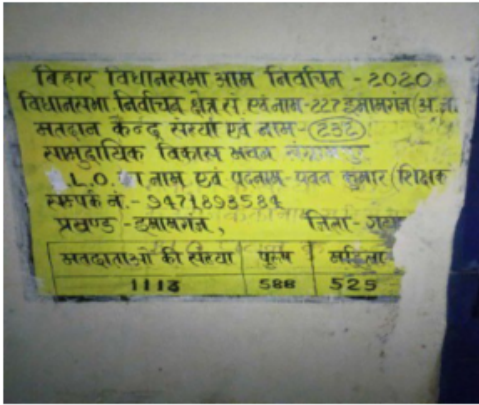 बिहार विधानसभा आम निर्वाचन - 2020
विधानसभा निर्वाचन क्षेत्र सं एवं नाम - 227 इमामगंज (अ.जा.
मतदान केन्द्र संख्या एवं नाम - (232)
सामुदायिक विकास भवन
B.L.O. का नाम एवं पदनाम - पवन कुमार (शिक्षक
सम्पर्क नं. - 9471893584
प्रखण्ड - इमामगंज, जिला - गया
मतदाताओं की संख्या पुरुष महिला
1113 588 525